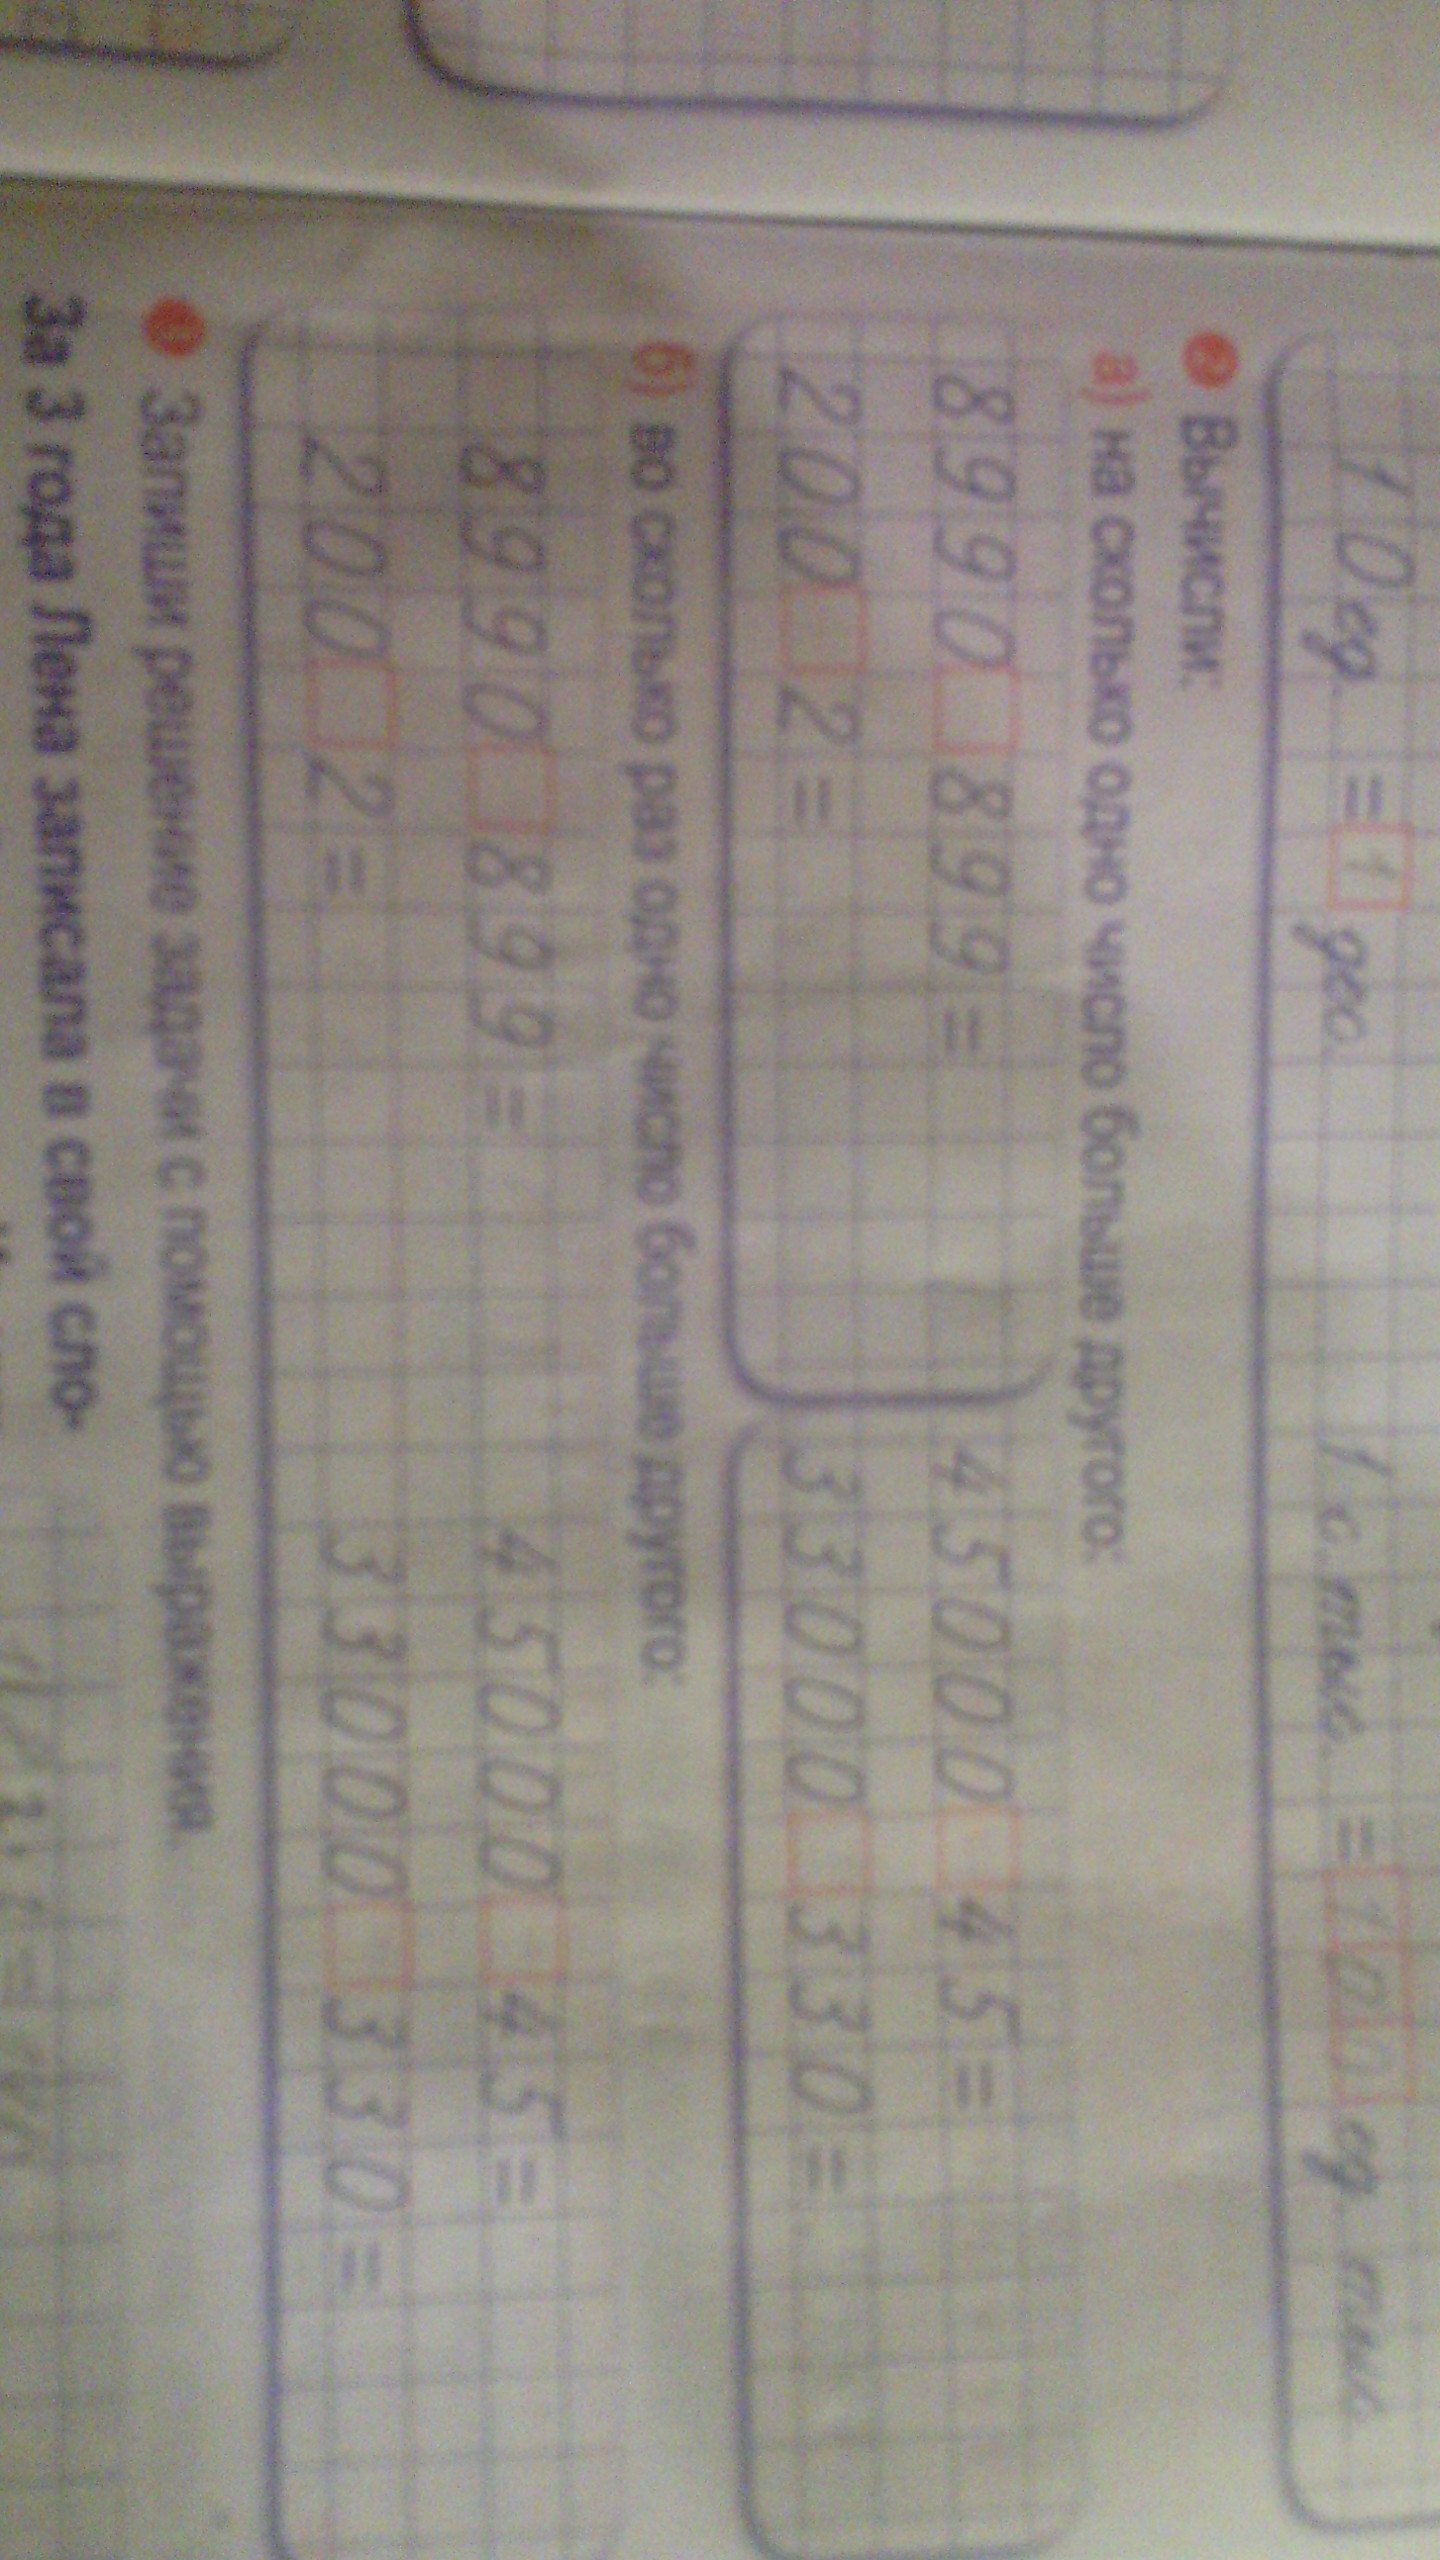 10 ед. = 1 дес. 1 с. тыс. = 100 ед. тыс.
2 Вычисли:
а) на сколько одно число больше другого:
8990 □ 899 = 45000 □ 45 =
200 □ 2 = 33000 □ 330 =
б) во сколько раз одно число больше другого:
8990 □ 899 = 45000 □ 45 =
200 □ 2 = 33000 □ 330 =
Запиши решение задачи с помощью выражения.
За 3 года Лена записала в свой сло-